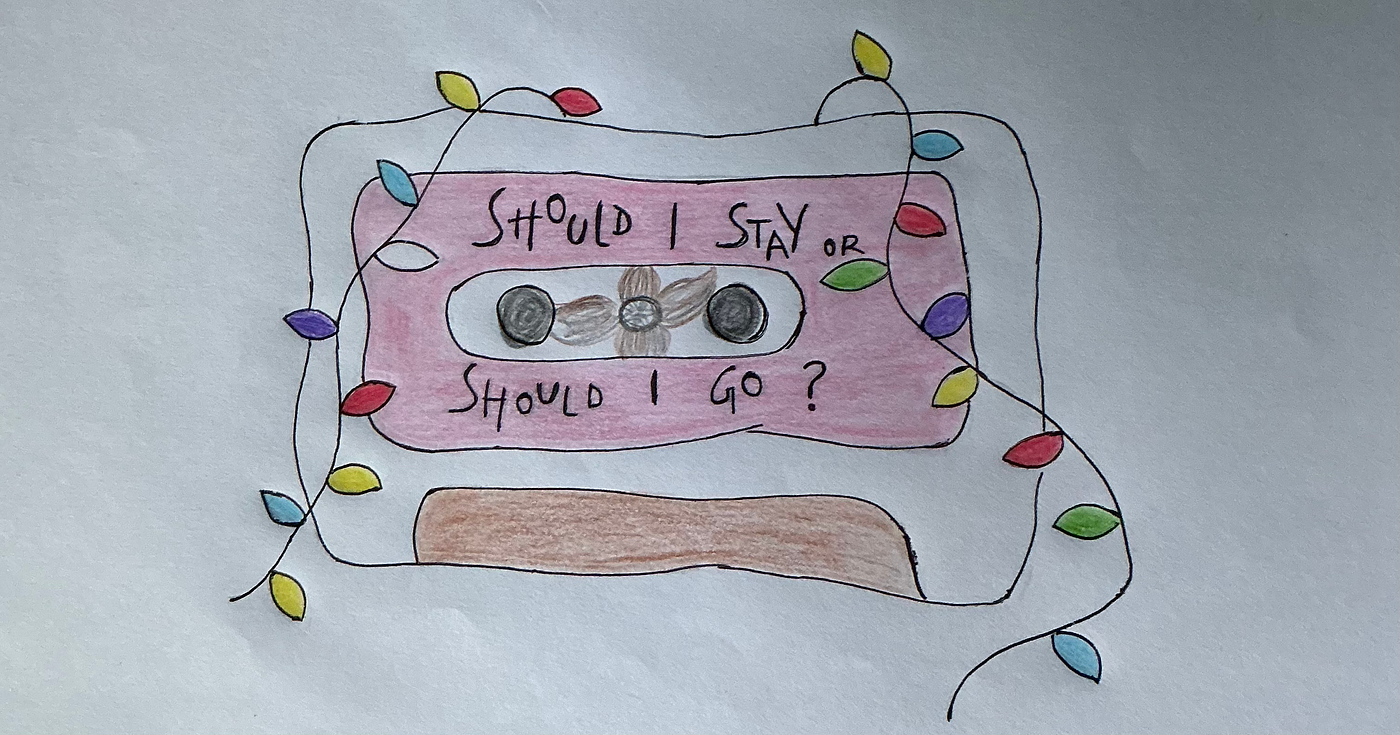 SHOULD I STAY OR
SHOULD I GO ?